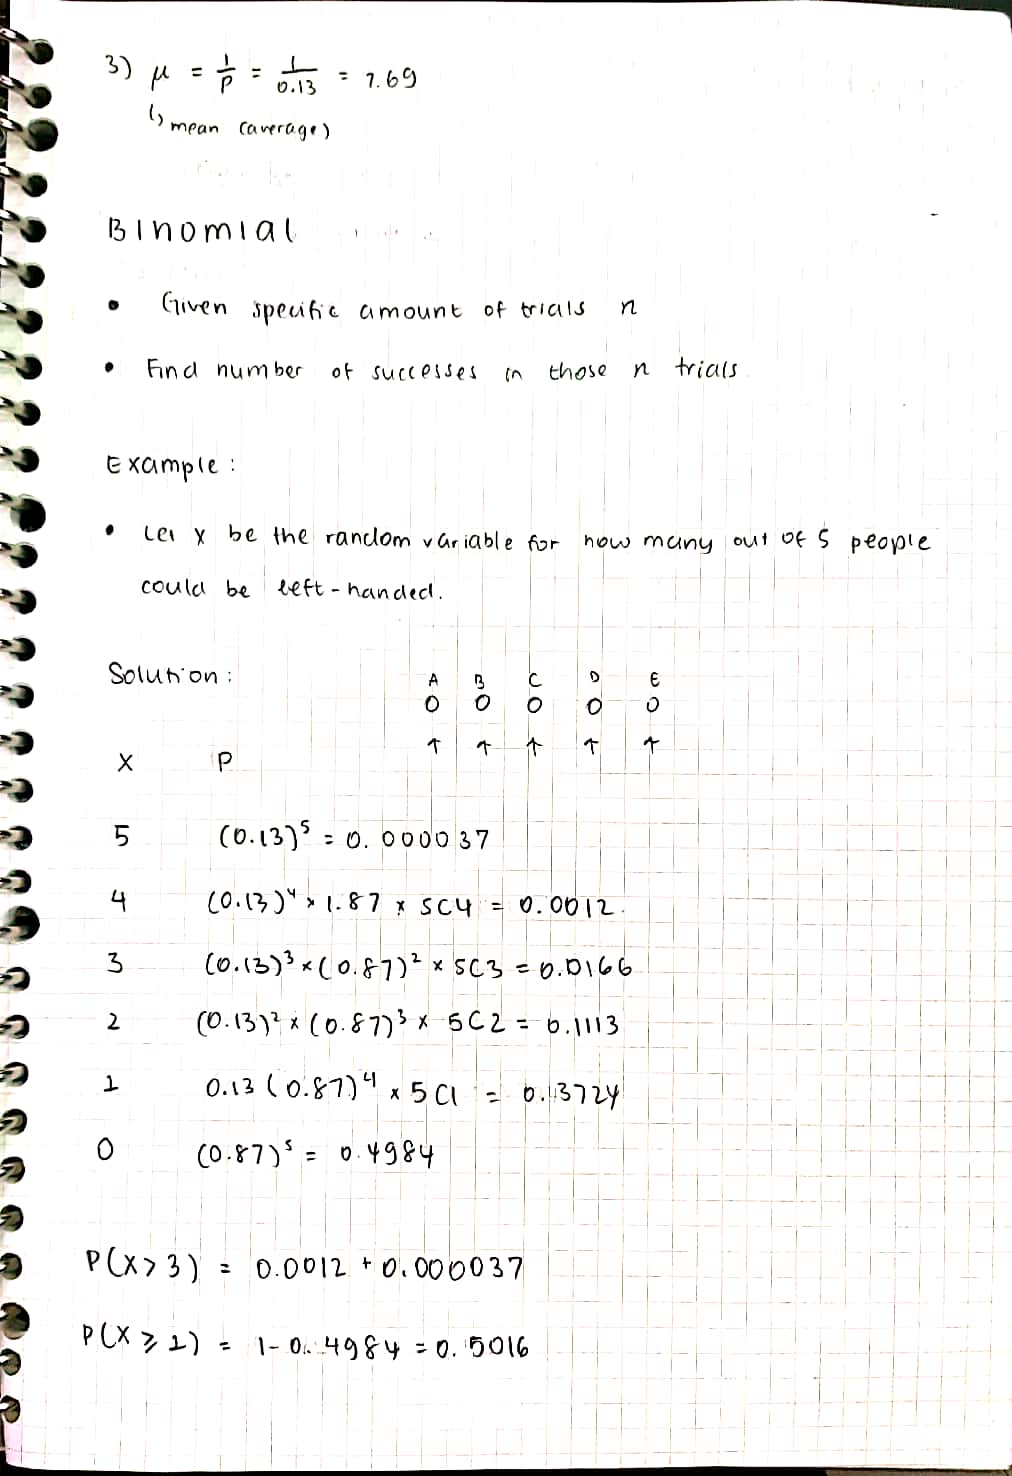 3) μ = 1/p = 1/0.13 = 7.69
↳ mean (average)
Binomial
• Given specific amount of trials n
• Find number of successes in those n trials
Example :
• Let X be the random variable for how many out of 5 people
could be left-handed.
Solution :
A B C D E
O O O O O
↑ ↑ ↑ ↑ ↑
X P
5 (0.13)⁵ = 0.000037
4 (0.13)⁴ × 1.87 × 5C4 = 0.0012
3 (0.13)³ × (0.87)² × 5C3 = 0.0166
2 (0.13)² × (0.87)³ × 5C2 = 0.1113
1 0.13 (0.87)⁴ × 5C1 = 0.13724
0 (0.87)⁵ = 0.4984
P(X > 3) = 0.0012 + 0.000037
P(X ⩾ 1) = 1 - 0.4984 = 0.5016